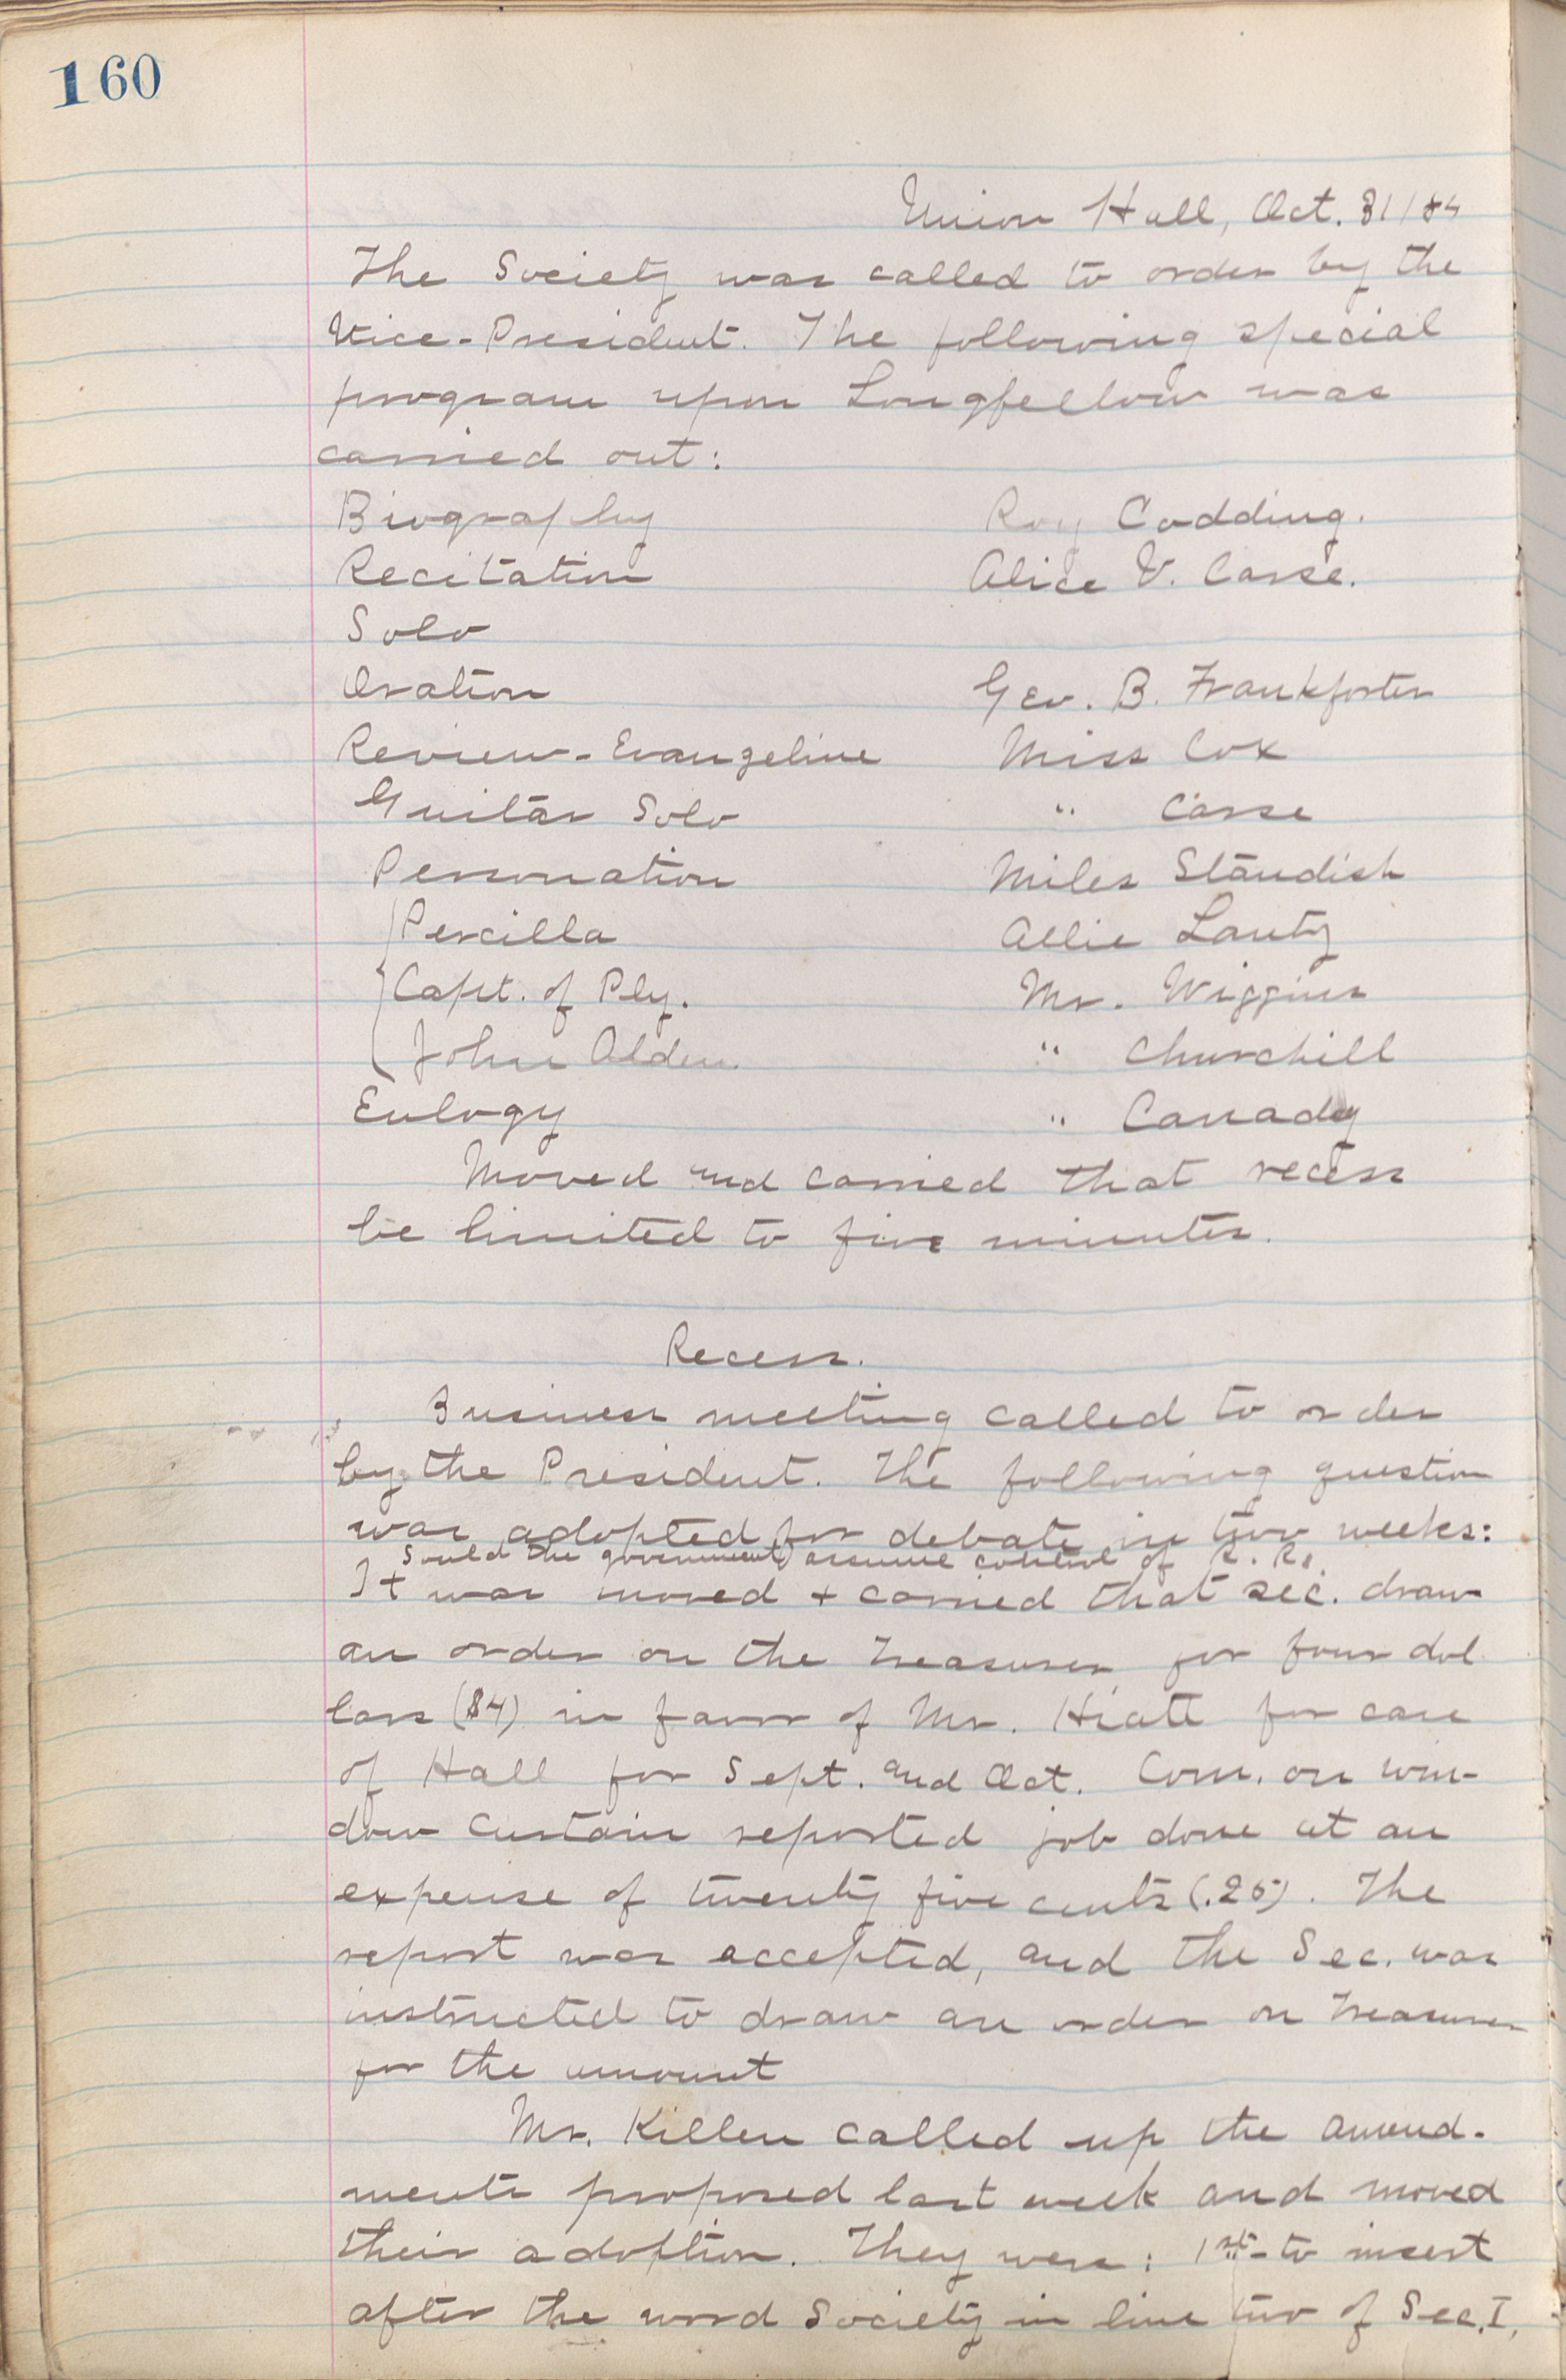 160
Union Hall, Oct. 31/84
The Society was called to order by the
Vice-President. The following special
program upon Longfellow was
carried out:
Biography Roy Codding.
Recitation Alice V. Carse.
Solo
Oration Geo. B. Frankforter
Review - Evangeline Miss Cox
Guitar Solo " Carse
Personation Miles Standish
Percilla Allie Lantz
Capt. of Ply. Mr. Wiggins
John Alden. " Churchill
Eulogy " Canady
Moved and carried that recess
be limited to five minutes.
Recess.
Business meeting called to order
by the President. The following question
was adopted for debate in two weeks:
Sould the government assume control of R. Rs.
It was moved + carried that sec. draw
an order on the Treasurer for four dol
lars ($4) in favor of Mr. Hiatt for care
of Hall for Sept. and Oct. Com. on win-
dow curtain reported job done at an
expense of twenty five cents (.25). The
report was accepted, and the Sec. was
instructed to draw an order on Treasurer
for the amount
Mr. Killen called up the amend-
ments proposed last week and moved
their adoption. They were: 1st - to insert
after the word Society in line two of Sec. I,